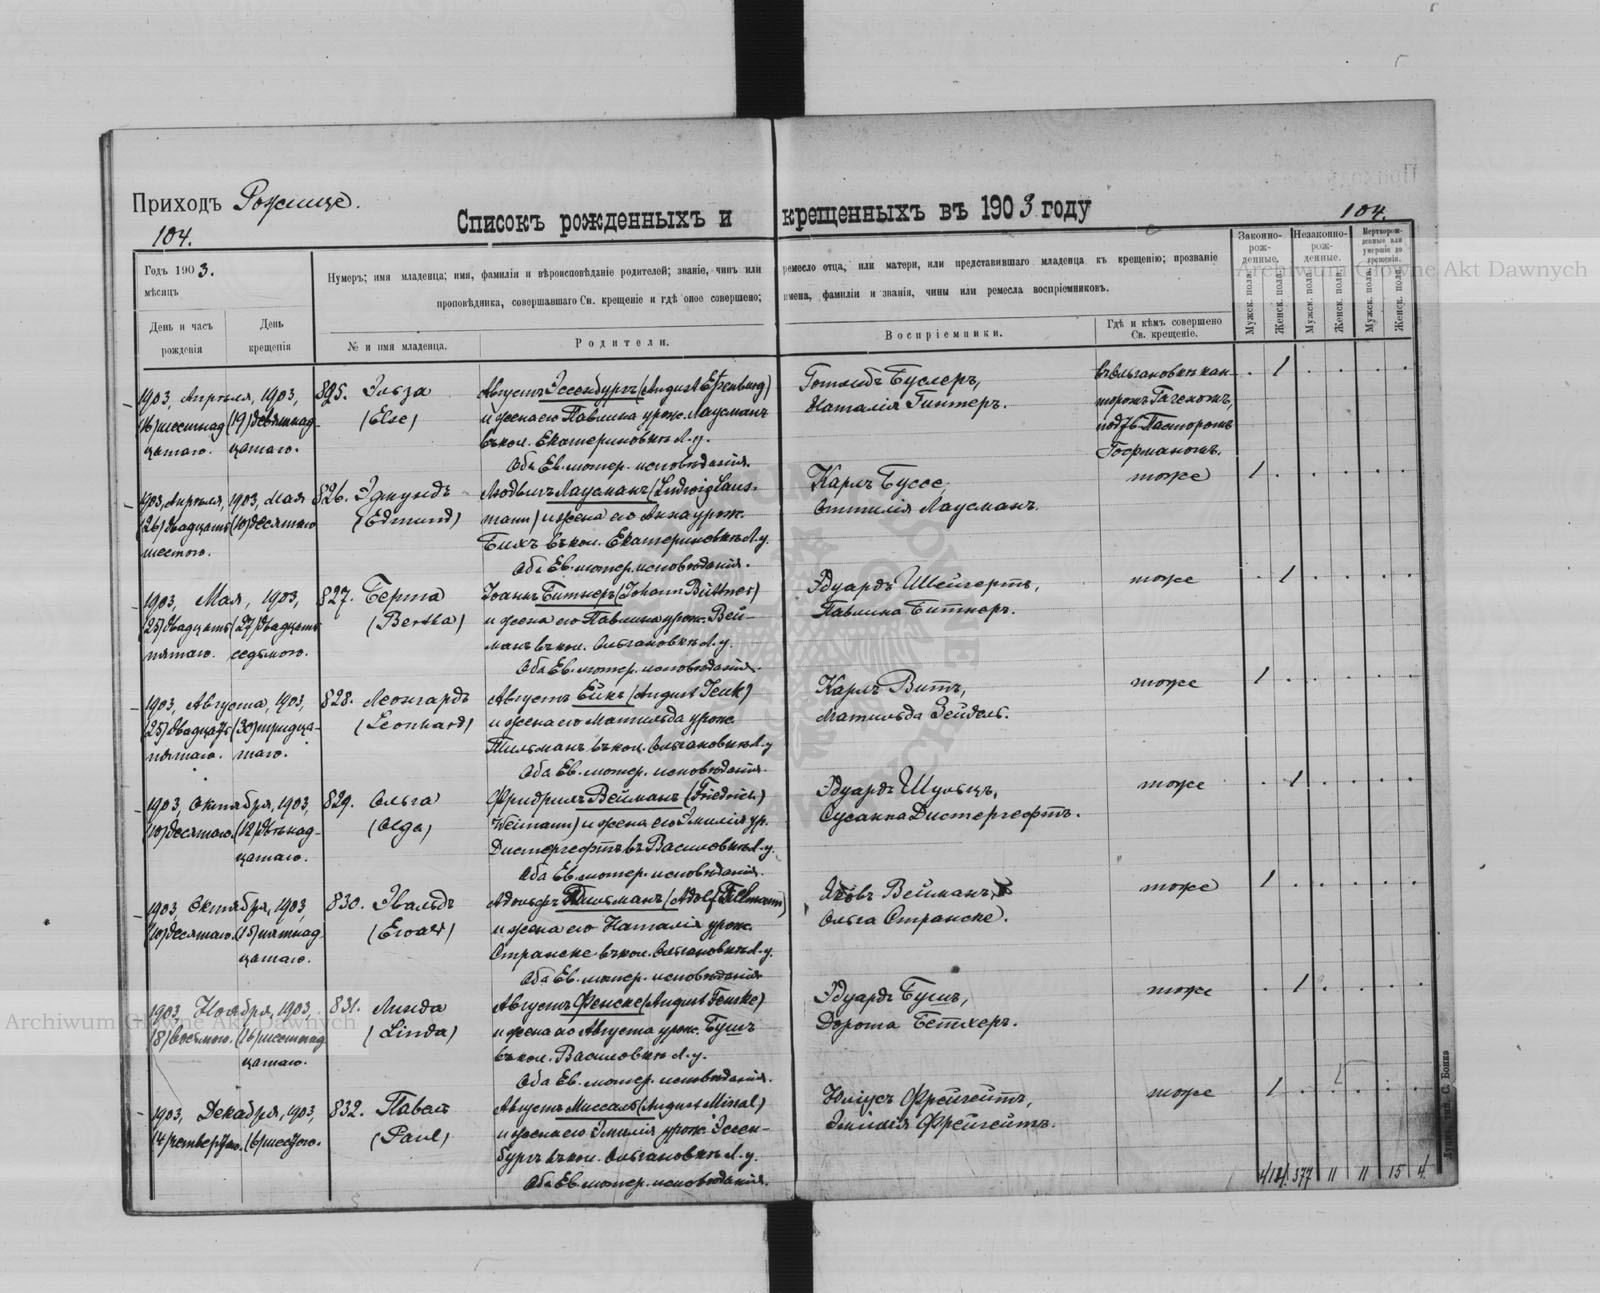 Приходъ Рожище.
Списокъ рожденныхъ и крещенныхъ въ 1903 году
104.
104.
Годъ 1903.
мѣсяцъ
День и часъ
рожденія
День
крещенія
Нумеръ; имя младенца; имя, фамилія и вѣроисповѣданіе родителей; званіе, чинъ или ремесло отца, или матери, или представившаго младенца къ крещенію; прозваніе
проповѣдника, совершавшаго Св. крещеніе и гдѣ оное совершено; имена, фамиліи и званія, чины или ремесла воспріемниковъ.
№ и имя младенца.
Родители.
Воспріемники.
Гдѣ и кѣмъ совершено
Св. крещеніе.
Законно-
рож-
денные.
Незаконно-
рож-
денные.
Мертворож-
денные или
умершіе до
крещенія.
Мужск. пола.
Женск. пола.
Мужск. пола.
Женск. пола.
Мужск. пола.
Женск. пола.
1903, Апрѣля, 1903,
(16) шестнад (19) девятнад-
цатаго. цатаго.
825. Эльза
(Else)
Августъ Эссенбургъ (August Eßenburg)
и жена его Павлина урож. Лаусманъ
въ кол. Екатериновкѣ Л. у.
Оба Ев. лютер. исповѣданія.
Готлибъ Буслеръ,
Наталія Гинтеръ.
въ Ольгановкѣ кан-
торомъ
подтв. Пасторомъ
Гофманомъ.
1903, Апрѣля, 1903, Мая
(26) двадцать (10) десятаго
шестого.
826. Эдмундъ
(Edmund)
Людвигъ Лаусманъ (Ludwig Laus-
mann) и жена его Анна урож.
въ кол. Екатериновкѣ Л. у.
Оба Ев. лютер. исповѣданія.
Карлъ Буссе,
Оттилія Лаусманъ.
тоже
1903, Мая, 1903,
(25) двадцать (27) двадцать
пятаго. седьмого.
827. Берта
(Bertha)
Іоаннъ Битнеръ (Johann Büttner)
и жена его Павлина урож. Вей-
манъ въ кол. Ольгановкѣ Л. у.
Оба Ев. лютер. исповѣданія.
Эдуардъ Шейгертъ,
Павлина Битнеръ.
тоже
1903, Августа, 1903,
(25) двадцать (30) тридца-
пятаго. таго.
828. Леонгардъ
(Leonhard)
Августъ Енкъ (August Jenk)
и жена его Матильда урож.
Тильманъ въ кол. Ольгановкѣ Л. у
Оба Ев. лютер. исповѣданія.
Карлъ Витъ,
Матильда Зейдель.
тоже
1903, Октября, 1903,
(10) десятаго. (12) двѣнад-
цатаго.
829. Ольга
(Olga)
Фридрихъ Вейманъ (Friedrich
Weimann) и жена его Эмилія ур.
Дистергефтъ въ Василовкѣ Л. у.
Оба Ев. лютер. исповѣданія.
Эдуардъ Шульцъ,
Сусанна Дистергефтъ.
тоже
1903, Октября, 1903,
(10) десятаго. (15) пятнад-
цатаго.
830. Эвальдъ
(Ewald)
Адольфъ Тильманъ (Adolf Tillmann)
и жена его Наталія урож.
Странске въ кол. Ольгановкѣ Л. у.
Оба Ев. лютер. исповѣданія
Яковъ Вейманъ,
Ольга Странске.
тоже
1903, Ноября, 1903,
(8) восьмого. (16) шестнад
цатаго.
831. Линда
(Linda)
Августъ Фенске (August Fenske)
и жена его Августа урож. Бушъ
въ кол. Василовкѣ Л. у.
Оба Ев. лютер. исповѣданія.
Эдуардъ Бушъ,
Дорота Бетхеръ.
тоже
1903, Декабря, 1903,
(4) четвертаго. (6) шестого.
832. Павелъ
(Paul)
Августъ Миссаль (August Missal)
и жена его Эмилія урож. Эссен-
бургъ въ кол. Ольгановкѣ Л. у.
Оба Ев. лютер. исповѣданія.
Юліусъ Фрейгейтъ,
Эмилія Фрейгейтъ.
тоже
414. 377 11 11 15 4.
Archiwum Główne Akt Dawnych
Archiwum Główne Akt Dawnych